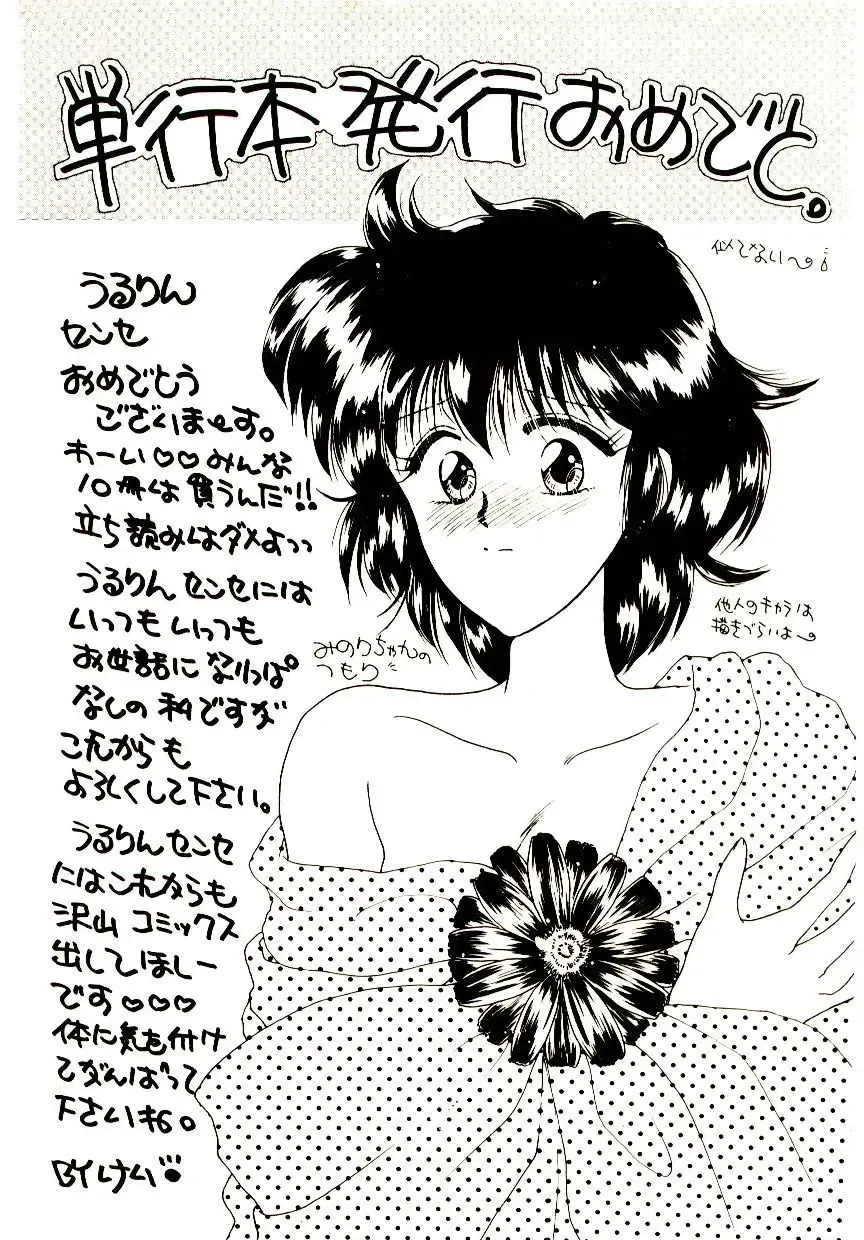 単行本発行おめでと。
似てない〜。
うるりん
センセ
おめでとう
ございま〜す。
わーい♡♡みんな
10冊は買うんだ!!
立ち読みはダメよっっ
うるりんセンセには
いっつもいっつも
お世話になりっぱ
なしの私ですが
これからも
よろしくして下さい。
うるりんセンセ
にはこれからも
沢山コミックス
出してほしー
です♡♡♡
体に気を付け
てがんばって
下さいね。
BYけい
みのりちゃんの
つもり
他人のキャラは
描きづらいよ〜。